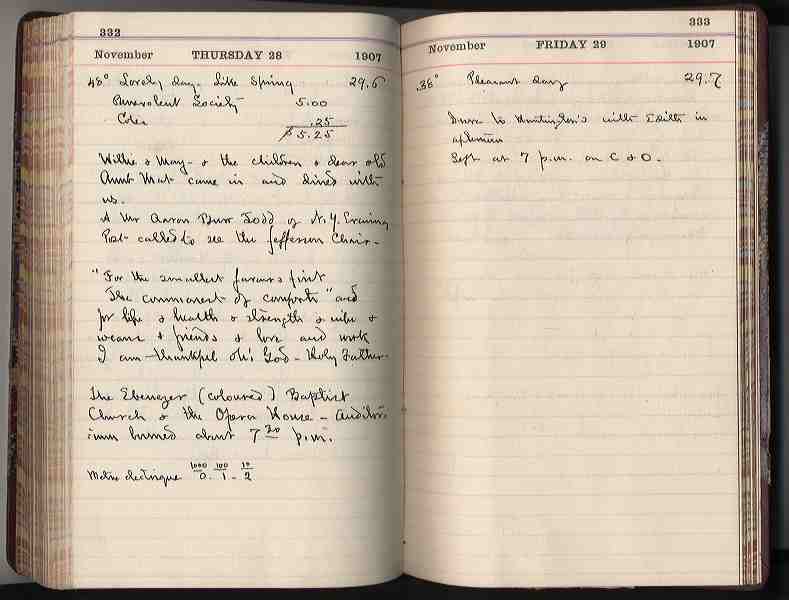 332
November THURSDAY 28 1907
48° Lovely day. Like Spring 29.6
Benevolent Society 5.00
Coles .25
$5.25
Willie & May - & the children & dear old
Aunt Mat came in and dined with
us.
A Mr Aaron Burr Todd of N.Y. Evening
Post called to see the Jefferson Chair -
"For the smallest favours first
The commonest of comforts" and
for life & health & strength &
means & friends & love and work
I am thankful oh! God - Holy Father.
The Ebenezer (coloured) Baptist
Church & the Opera House - Auditor-
ium burned about 7 30 p.m.
1000 100 10
0. 1 - 2
333
November FRIDAY 29 1907
.38° Pleasant day 29.7
Drove to Huntington's with Edith in
afternoon
Left at 7 p.m. on C & O.